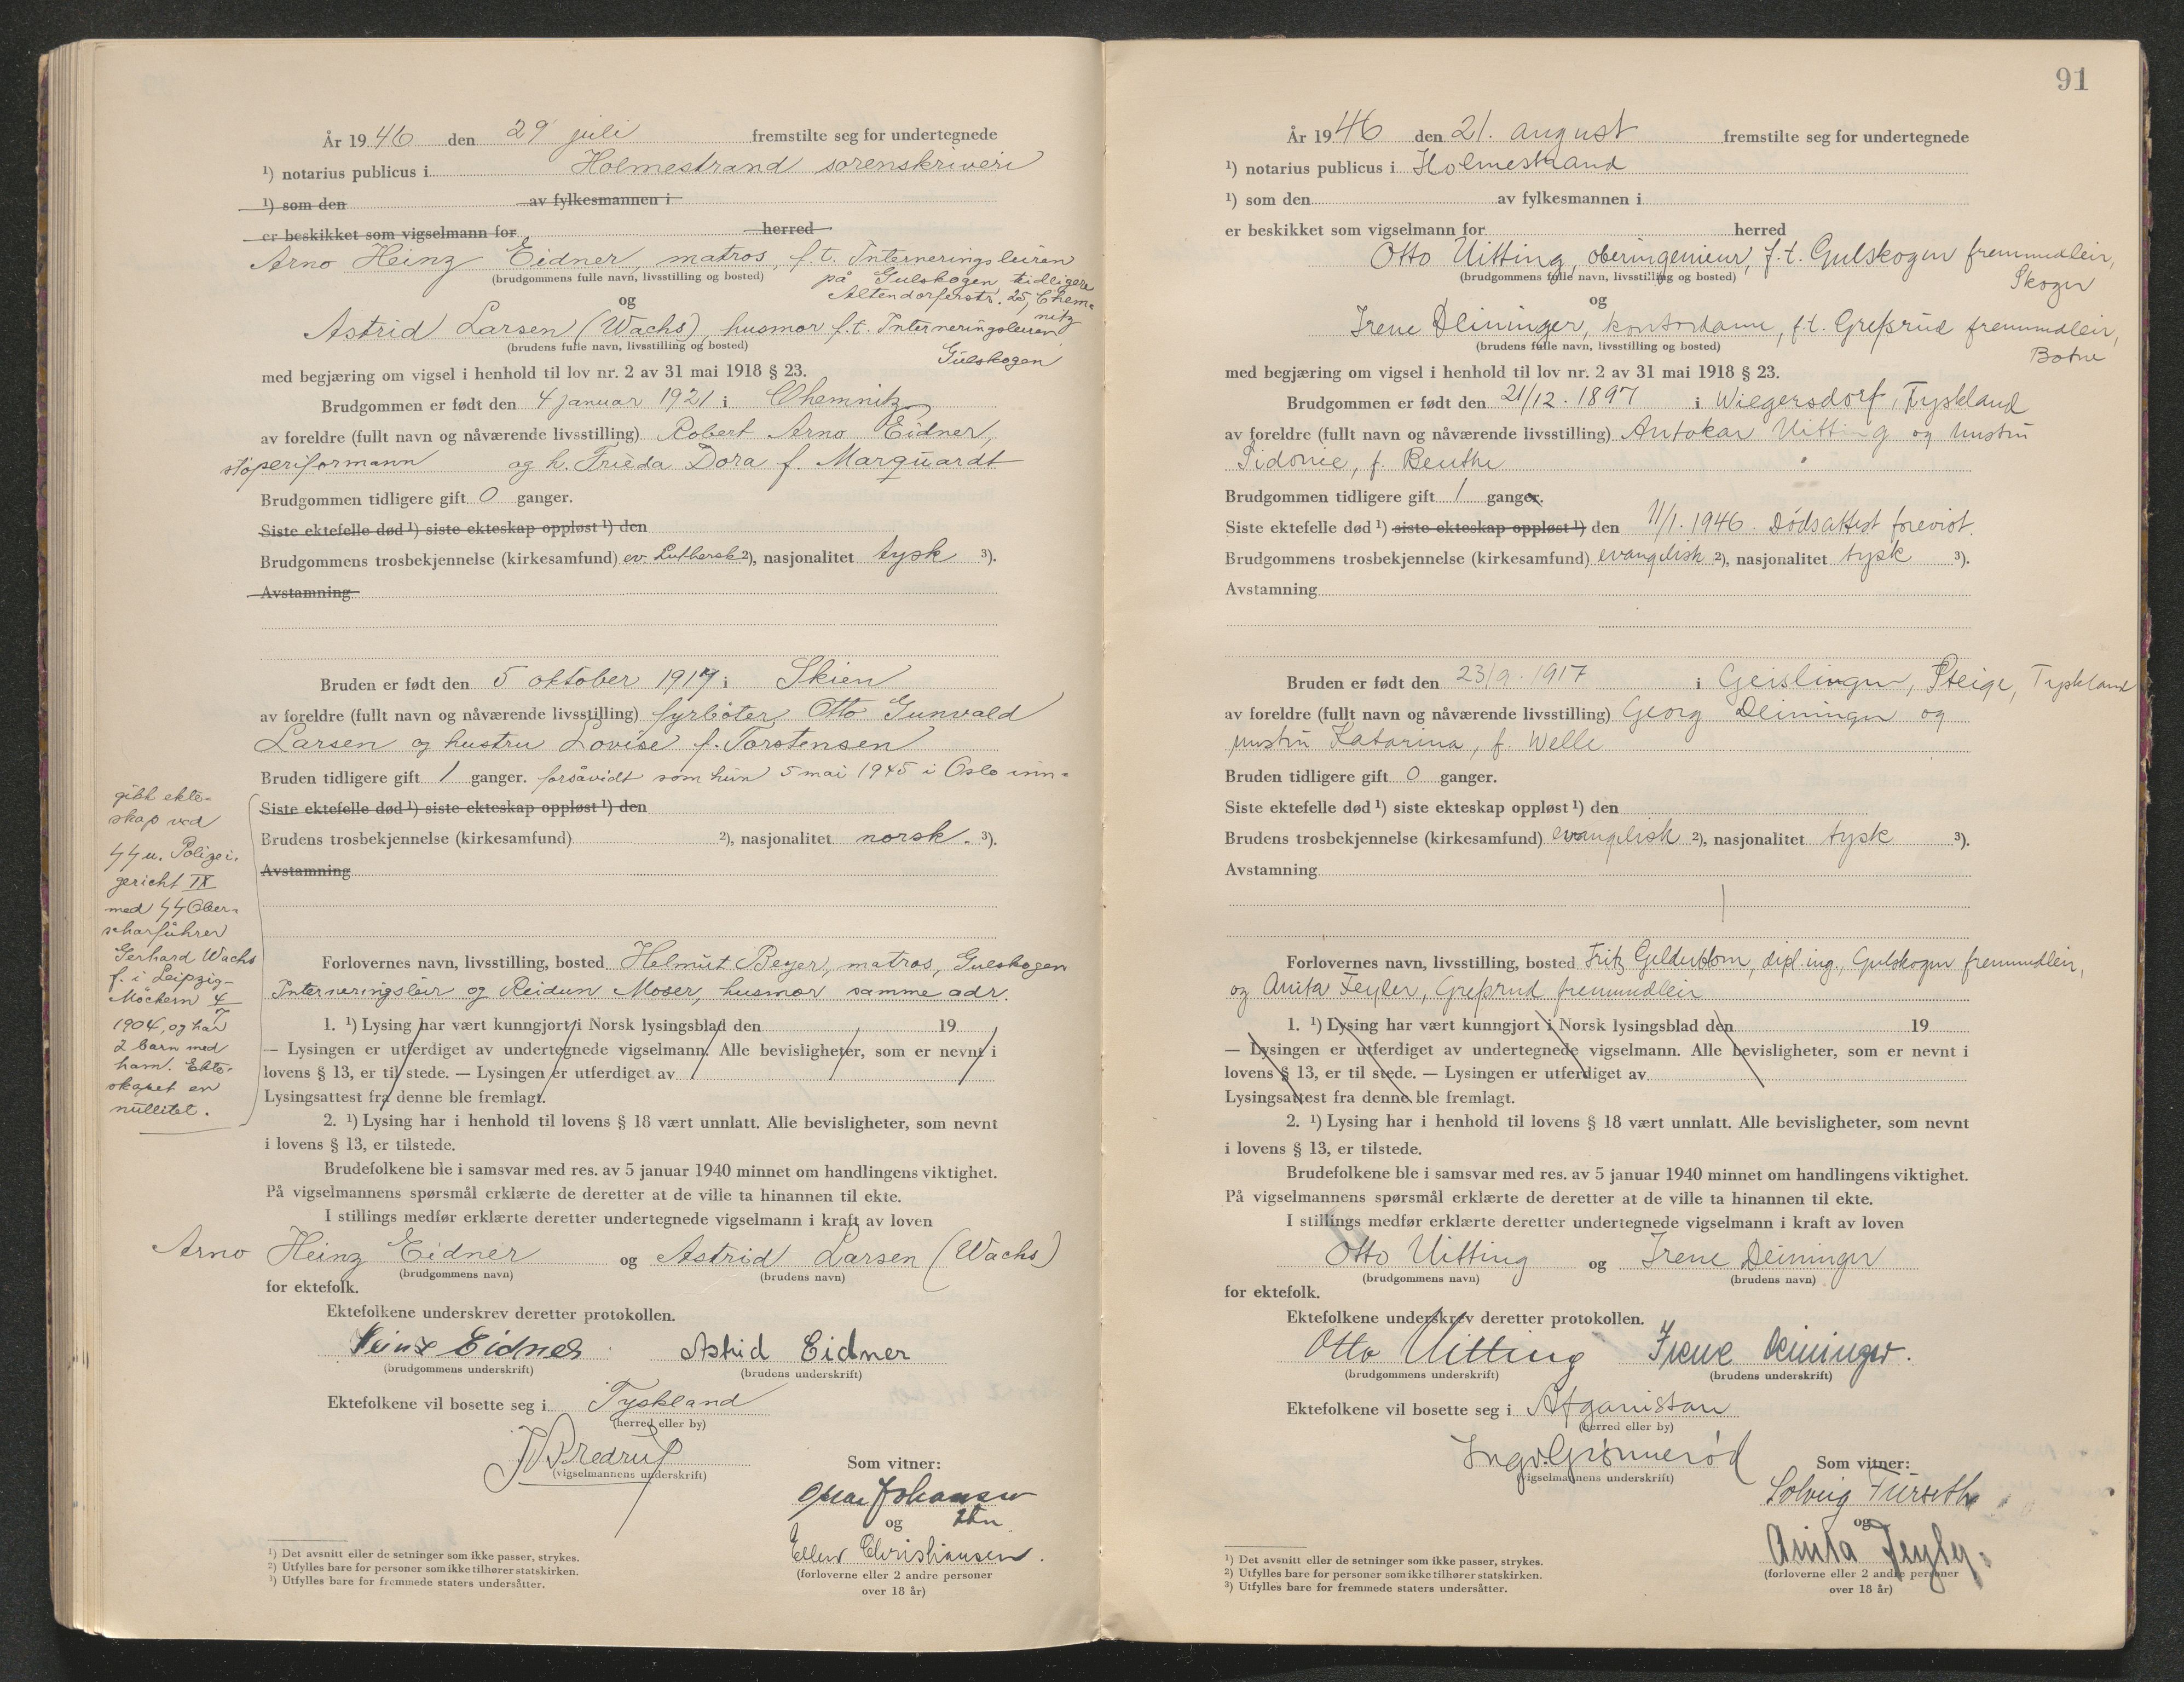 År 1946 den 29 juli fremstilte seg for undertegnede
¹) notarius publicus i Holmestrand sorenskriveri
¹) som den av fylkesmannen i
er beskikket som vigselmann for herred
Arno Heinz Eidner, matros, f.t. Interneringsleiren
(brudgommens fulle navn, livsstilling og bosted)
på Gulskogen tidligere
Altendorferstr. 25, Chem-
nitz
og
Astrid Larsen (Wachs), husmor f.t. Interneringsleiren
(brudens fulle navn, livsstilling og bosted)
Gulskogen
med begjæring om vigsel i henhold til lov nr. 2 av 31 mai 1918 § 23.
Brudgommen er født den 4 januar 1921 i Chemnitz
av foreldre (fullt navn og nåværende livsstilling) Robert Arno Eidner,
støperiformann og h. Frieda Dora f. Marquardt
Brudgommen tidligere gift 0 ganger.
Siste ektefelle død ¹) siste ekteskap oppløst ¹) den
Brudgommens trosbekjennelse (kirkesamfund) ev. Luthersk ²), nasjonalitet tysk ³).
Avstamning
Bruden er født den 5 oktober 1917 i Skien
av foreldre (fullt navn og nåværende livsstilling) fyrbøter Otto Gunvald
Larsen og hustru Lovise f. Torstensen
Bruden tidligere gift 1 ganger. forsåvidt som hun 5 mai 1945 i Oslo inn-
gikk ekte-
skap ved
SS u. Polizei.
gericht IX
med SS Ober-
scharführer
Gerhard Wachs
f. i Leipzig-
Möckern 4/7
1904, og har
2 barn med
ham. Ekte-
skapet en
nullitet.
Siste ektefelle død ¹) siste ekteskap oppløst ¹) den
Brudens trosbekjennelse (kirkesamfund) ²), nasjonalitet norsk. ³).
Avstamning
Forlovernes navn, livsstilling, bosted Helmut Beyer, matros, Gulskogen
Interneringsleir og Reidun Moser, husmor samme adr.
1. ¹) Lysing har vært kunngjort i Norsk lysingsblad den 19
— Lysingen er utferdiget av undertegnede vigselmann. Alle bevisligheter, som er nevnt i
lovens § 13, er til stede. — Lysingen er utferdiget av
Lysingsattest fra denne ble fremlagt.
2. ¹) Lysing har i henhold til lovens § 18 vært unnlatt. Alle bevisligheter, som nevnt
i lovens § 13, er tilstede.
Brudefolkene ble i samsvar med res. av 5 januar 1940 minnet om handlingens viktighet.
På vigselmannens spørsmål erklærte de deretter at de ville ta hinannen til ekte.
I stillings medfør erklærte deretter undertegnede vigselmann i kraft av loven
Arno Heinz Eidner og Astrid Larsen (Wachs)
(brudgommens navn) (brudens navn)
for ektefolk.
Ektefolkene underskrev deretter protokollen.
Heinz Eidner Astrid Eidner
(brudgommens underskrift) (brudens underskrift)
Ektefolkene vil bosette seg i Tyskland
(herred eller by)
(vigselmannens underskrift)
Som vitner:
Johansen
og
Ellen Christiansen.
(forloverne eller 2 andre personer
over 18 år)
¹) Det avsnitt eller de setninger som ikke passer, strykes.
²) Utfylles bare for personer som ikke tilhører statskirken.
³) Utfylles bare for fremmede staters undersåtter.
91
År 1946 den 21. august fremstilte seg for undertegnede
¹) notarius publicus i Holmestrand
¹) som den av fylkesmannen i
er beskikket som vigselmann for herred
Otto Uitting, oberingenieur, f.t. Gulskogen fremmedleir,
(brudgommens fulle navn, livsstilling og bosted)
Skoger
og
Irene Deininger, kontordame, f.t. Grefsrud fremmedleir,
(brudens fulle navn, livsstilling og bosted)
Botne
med begjæring om vigsel i henhold til lov nr. 2 av 31 mai 1918 § 23.
Brudgommen er født den 21/12. 1897 i Wiegersdorf, Tyskland
av foreldre (fullt navn og nåværende livsstilling) Antokar Uitting og hustru
Sidonie, f. Benthe
Brudgommen tidligere gift 1 ganger.
Siste ektefelle død ¹) siste ekteskap oppløst ¹) den 11/1. 1946. Dødsattest forevist.
Brudgommens trosbekjennelse (kirkesamfund) evangelisk ²), nasjonalitet tysk ³).
Avstamning
Bruden er født den 23/9. 1917 i Geislingen, Steige, Tyskland
av foreldre (fullt navn og nåværende livsstilling) Georg Deininger og
hustru Katarina, f. Welle
Bruden tidligere gift 0 ganger.
Siste ektefelle død ¹) siste ekteskap oppløst ¹) den
Brudens trosbekjennelse (kirkesamfund) evangelisk ²), nasjonalitet tysk ³).
Avstamning
Forlovernes navn, livsstilling, bosted Fritz Gelderblom, dipl. ing., Gulskogen fremmedleir,
og Anita Feyler, Grefsrud fremmedleir
1. ¹) Lysing har vært kunngjort i Norsk lysingsblad den 19
— Lysingen er utferdiget av undertegnede vigselmann. Alle bevisligheter, som er nevnt i
lovens § 13, er til stede. — Lysingen er utferdiget av
Lysingsattest fra denne ble fremlagt.
2. ¹) Lysing har i henhold til lovens § 18 vært unnlatt. Alle bevisligheter, som nevnt
i lovens § 13, er tilstede.
Brudefolkene ble i samsvar med res. av 5 januar 1940 minnet om handlingens viktighet.
På vigselmannens spørsmål erklærte de deretter at de ville ta hinannen til ekte.
I stillings medfør erklærte deretter undertegnede vigselmann i kraft av loven
Otto Uitting og Irene Deininger
(brudgommens navn) (brudens navn)
for ektefolk.
Ektefolkene underskrev deretter protokollen.
Otto Uitting Irene Deininger.
(brudgommens underskrift) (brudens underskrift)
Ektefolkene vil bosette seg i Afganistan
(herred eller by)
Ingv. Grønnerød
(vigselmannens underskrift)
Som vitner:
Solveig Furseth
og
Anita Feyler.
(forloverne eller 2 andre personer
over 18 år)
¹) Det avsnitt eller de setninger som ikke passer, strykes.
²) Utfylles bare for personer som ikke tilhører statskirken.
³) Utfylles bare for fremmede staters undersåtter.